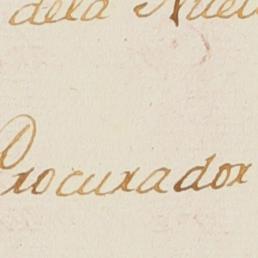 dela Nuev
Procurador